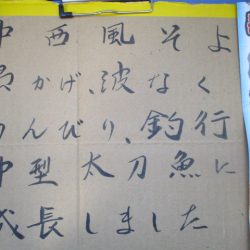 中西風そよ
かげ、波なく
のんびり、釣行
中型太刀魚に
成長しました